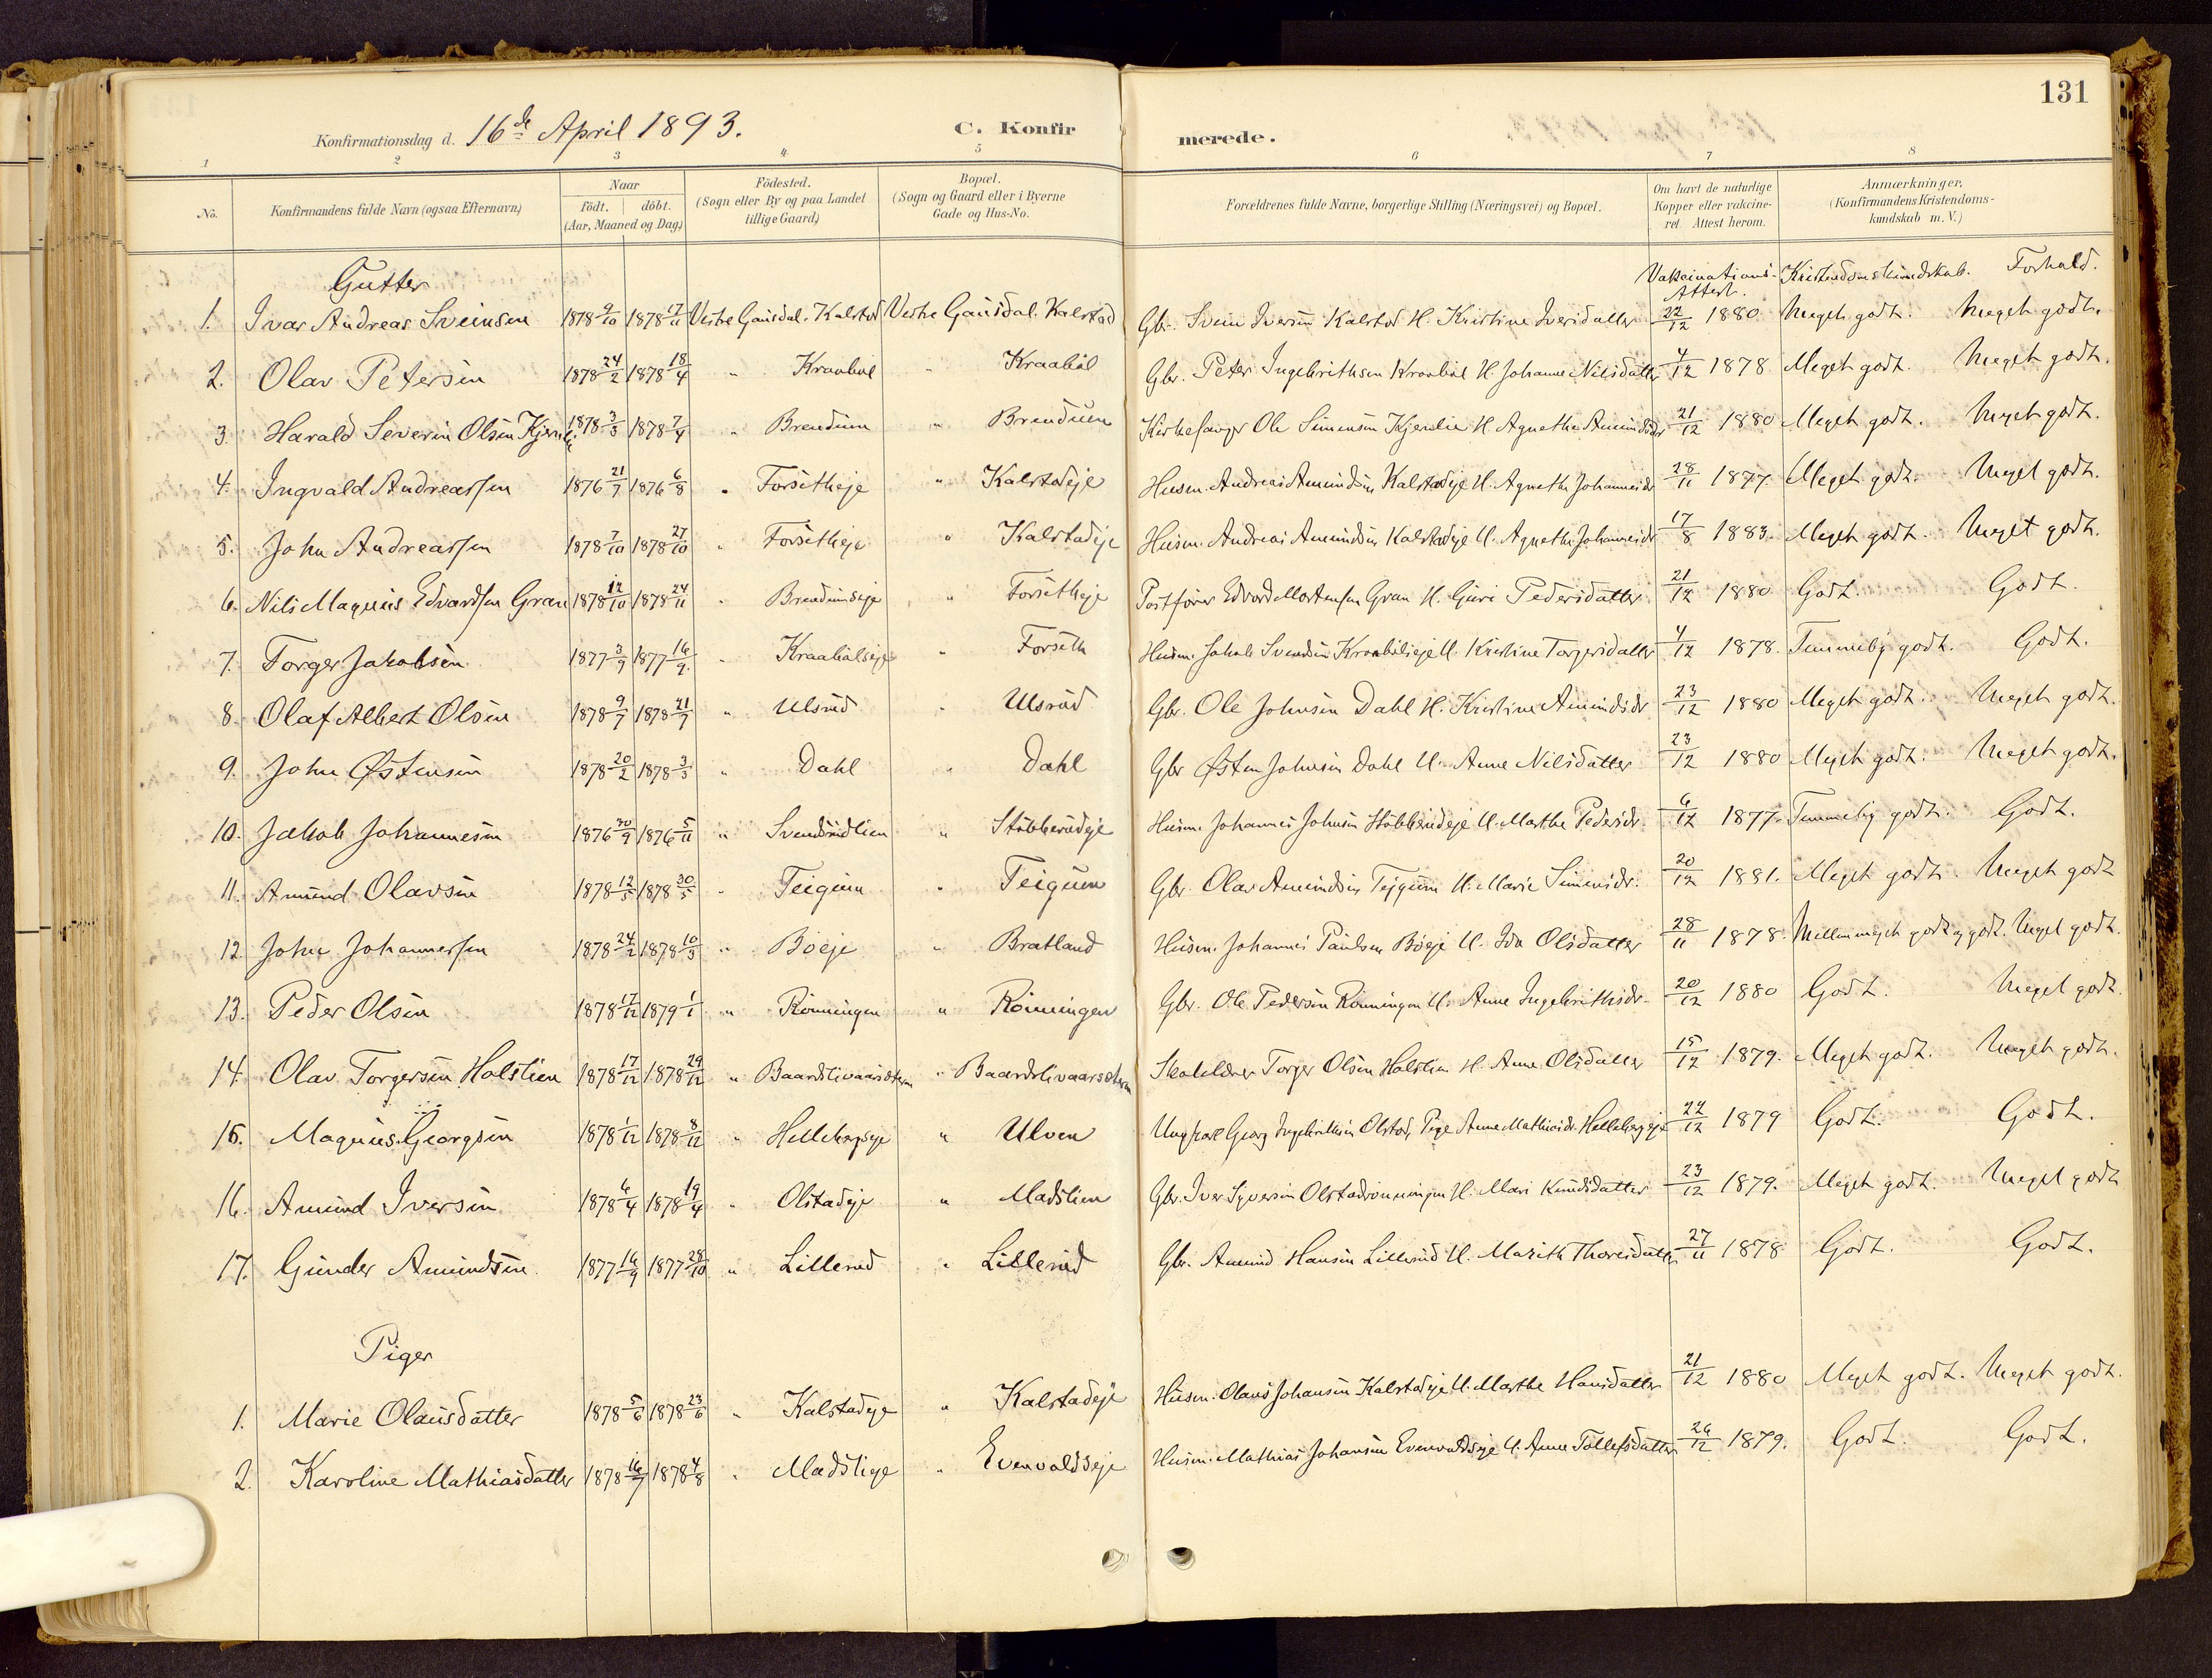 131
Konfirmationsdag d. 16de April 1893. C. Konfirmerede.
1 2 3 4 5 6 7 8
No. Konfirmandens fulde Navn (ogsaa Efternavn) Naar födt. döbt. (Aar, Maaned og Dag) Födested. (Sogn eller By og paa Landet tillige Gaard) Bopæl. (Sogn og Gaard eller i Byerne Gade og Hus-No. Forældrenes fulde Navne, borgerlige Stilling (Næringsvei) og Bopæl. Om havt de naturlige Kopper eller vakcineret. Attest herom. Anmærkninger, (Konfirmandens Kristendomskundskab m. V.)
Gutter Vakcinations-Attest. Kristendomskundskab. Forhold.
1. Ivar Andreas Sveinsen 1878 9/10 1878 17/11 Vestre Gausdal. Kalstad Vestre Gausdal. Kalstad Gbr. Svein Iversen Kalstad H. Kristine Iversdatter 22/12 1880 Meget godt. Meget godt.
2. Olav Petersen 1878 24/2 1878 18/4 " Kraabøl " Kraabøl Gbr. Peter Ingebrithsen Kraabøl H. Johanne Nilsdatter 4/12 1878 Meget godt. Meget godt.
3. Harald Severin Olsen Kjernli 1878 3/3 1878 7/4 " Brendum " Brenduen Kirkesanger Ole Simensen Kjernlie H. Agnethe Amundsdr 21/12 1880 Meget godt. Meget godt.
4. Ingvald Andreassen 1876 21/7 1876 6/8 " Forsetheje " Kalstadeje Husm. Andreas Amundsen Kalstadeje H. Agnethe Johannesdr 28/11 1877. Meget godt. Meget godt.
5. John Andreassen 1878 7/10 1878 27/10 " Forsetheje " Kalstadeje Husm. Andreas Amundsen Kalstadeje H. Agnethe Johannesdr 17/8 1883. Meget godt. Meget godt.
6. Nils Magnus Edvardsen Gran 1878 12/10 1878 24/11 " Brendumseje " Forsetheje Postfører Edvard Mortensen Gran H. Guri Pedersdatter 21/12 1880 Godt. Godt.
7. Torger Jakobsen 1877 3/9 1877 16/9 " Kraabølseje " Forseth Husm. Jakob Svendsen Kraabølseje H. Kristine Torgersdatter 4/12 1878. Temmelig godt. Godt.
8. Olaf Albert Olsen 1878 9/7 1878 21/7 " Ulsrud " Ulsrud Gbr. Ole Johnsen Dahl H. Kristine Amundsdr 23/12 1880 Meget godt. Meget godt.
9. John Østensen 1878 20/2 1878 3/3 " Dahl " Dahl Gbr Østen Johnsen Dahl H. Anne Nilsdatter 23/12 1880 Meget godt. Meget godt.
10. Jakob Johannesen 1876 30/9 1876 5/11 " Svendsrudlien " Stubberudeje Husm. Johannes Johnsen Stubberudeje H. Marthe Pedersdr. 6/12 1877. Temmelig godt. Godt.
11. Amund Olavsen 1878 12/5 1878 30/5 " Teigum " Teigum Gbr. Olav Amundsen Tejgum H. Marie Simensdr. 20/12 1881. Meget godt. Meget godt
12. John Johannessen 1878 24/2 1878 10/3 " Bøeje " Bratland Husm. Johannes Paulsen Bøeje H. Ida Olsdatter 28/11 1878. Mellem meget godt og godt. Meget godt.
13. Peder Olsen 1878 17/12 1879 1/1 " Rönningen " Rönningen Gbr. Ole Pedersen Rönningen H. Anne Ingebrithsdr. 20/12 1880 Godt. Meget godt.
14. Olav Torgersen Holstien 1878 17/12 1878 29/12 " " Skoleldrer Torger Olsen Holstien H. Anne Olsdatter 15/12 1879. Meget godt. Meget godt.
15. Magnus Georgsen 1878 1/12 1878 8/12 " Hellebergseje " Ulven Ungkarl Georg Ingebrithsen Olstad, Pige Anne Mathiasdr. Hellebergeje 22/12 1879 Godt. Godt.
16. Amund Iversen 1878 6/4 1878 19/4 " Olstadeje " Madslien Gbr. Iver Syversen Olstadrønningen H. Mari Knudsdatter 23/12 1879. Meget godt. Meget godt
17. Gunder Amundsen 1877 16/9 1877 28/10 " Lillerud " Lillerud Gbr. Amund Hansen Lillerud H. Marith Thoresdatter 27/11 1878 Godt. Godt.
Piger
1. Marie Olausdatter 1878 5/6 1878 23/6 " Kalstadeje " Kalstadeje Husm. Olaus Johansen Kalstadeje H. Marthe Hansdatter 21/12 1880 Meget godt. Meget godt.
2. Karoline Mathiasdatter 1878 16/7 1878 4/8 " Madslieje " Evenvoldseje Husm. Mathias Johansen Evenvoldseje H. Anne Tollefsdatter 26/12 1879. Godt. Godt.